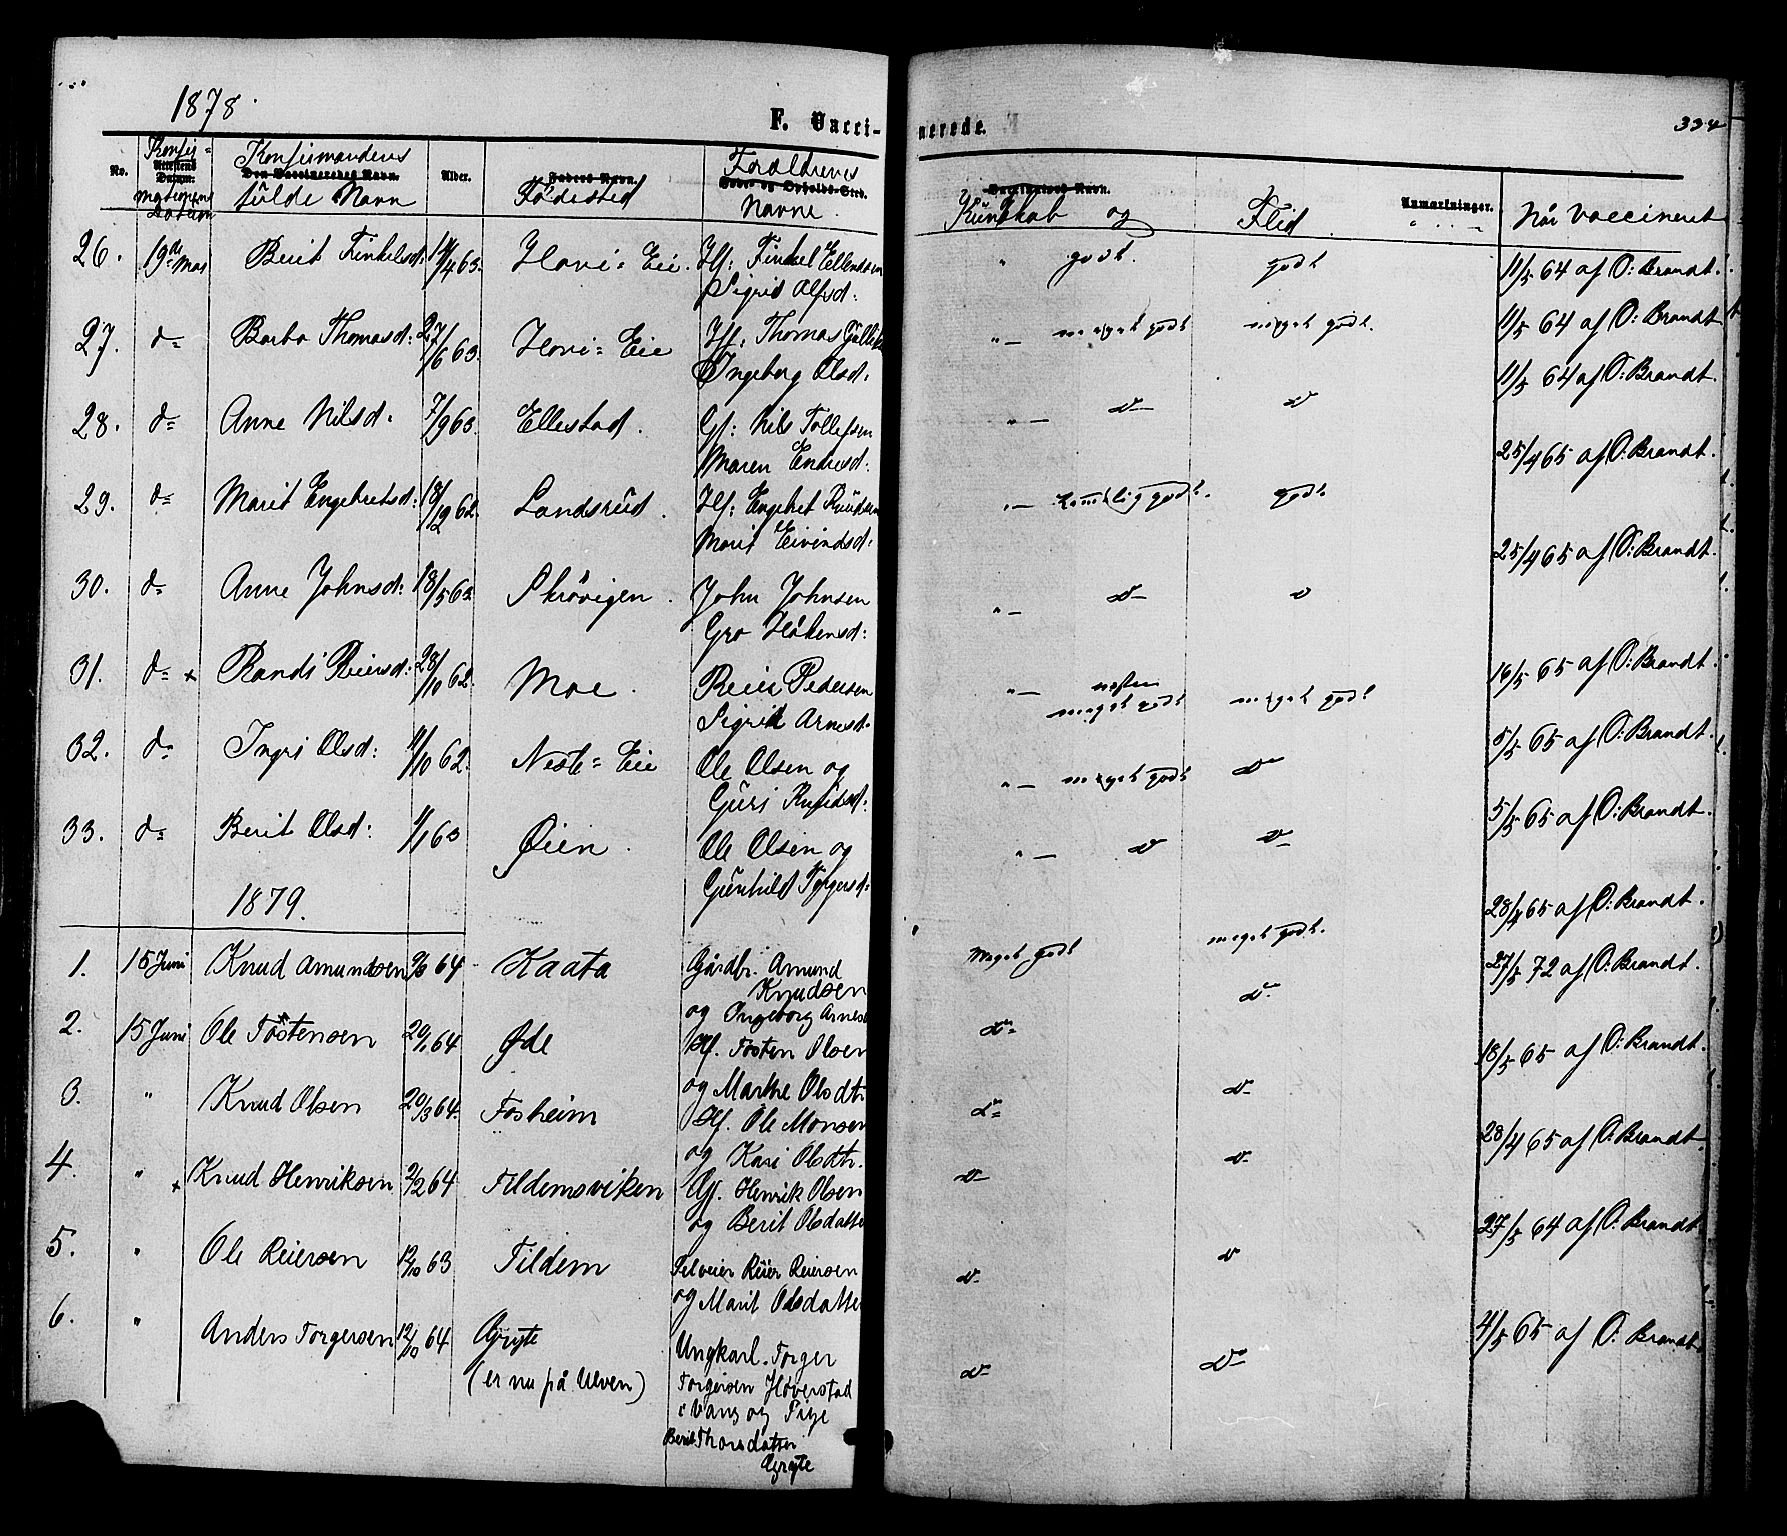 1878.
F. Vacci-
nerede.
334
No.
Konfir-
Attestens
Datum.
mationens
Datum
Konfirmandens
Den Vaccineredes Navn.
fulde Navn
Alder.
Faders Navn.
Fødested
Forældrenes
Navne.
Vaccinateurs Navn.
Kundskab og Flid
Anmærkninger.
Når vaccineret
26. 19de Mai Berit Finkelsd: 14/4 63. Hovi=Eie. Hf: Finkel Ellendsen
Sigrid Olfsd:
godt. godt 11/5 64 af O: Brandt.
27. do Barbo Thomasd: 27/6 63. Hovi=Eie Hf: Thomas
Ingeborg Olsd:
meget godt meget godt. 11/5 64 af O: Brandt
28. do Anne Nilsd: 7/9 63. Ellestad. Gf: Nils Tollefsen
Maren Endresd:
do do 11/5 64 af O: Brandt.
29. do Marit Engebretsd: 18/12 62. Landsrud. Hf: Engebret Knudsen
Marit Eivindsd:
temmelig godt. godt. 25/4 65 af O: Brandt.
30. do Anne Johnsd: 18/5 63 Skrövigen. John Johnsen
Gro Håkensd:
do do 25/4 65 af O: Brandt.
31. do x Randi Reiersd: 28/10 62. Moe. Reier Pedersen
Sigrid Arnesd.
næsten
meget godt meget godt 16/5 65 af O: Brandt.
32. do Ingri Olsd: 11/10 62. Neste=Eie Ole Olsen og
Guri Knudsd:
meget godt do 5/5 65 af O: Brandt.
33. do Berit Olsd: 1/1 63 Øien. Ole Olsen og
Gunhild Torgersd:
do do 5/5 65 af O: Brandt.
1879.
1. 15 Juni Knud Amundsen 64 Kaata Gårdbr. Amund
Knudsen
og Ingeborg Arnesd
Meget godt meget godt. 28/4 65 af O: Brandt.
2. 15 Juni Ole Tostensen 20/1 64 Øde Hf. Tosten Olsen
og Marthe Olsdtr
do do 27/5 72 af O: Brandt.
3. " Knud Olsen 20/3 64. Fosheim Hf. Ole Monsen
og Kari Olsdtr.
do do 18/5 65 af O: Brandt.
4. " x Knud Henriksen 2/2 64 Tildemsviken Gf. Henrik Olsen
og Berit Olsdatter
do do 28/4 65 af O: Brandt
5. " Ole Reiersen 12/10 63 Tildem Selveier Reier Reiersen
og Marit Olsdatter
do do 27/5 64 af O: Brandt
6. " Anders Torgersen 12/10 64 Gryte Ungkarl. Torger
(er nu på Ulven) Torgersen Høverstad
i Vang og Pige
Berit Thorsdatter
Gryte
do do 4/5 65 af O: Brandt.